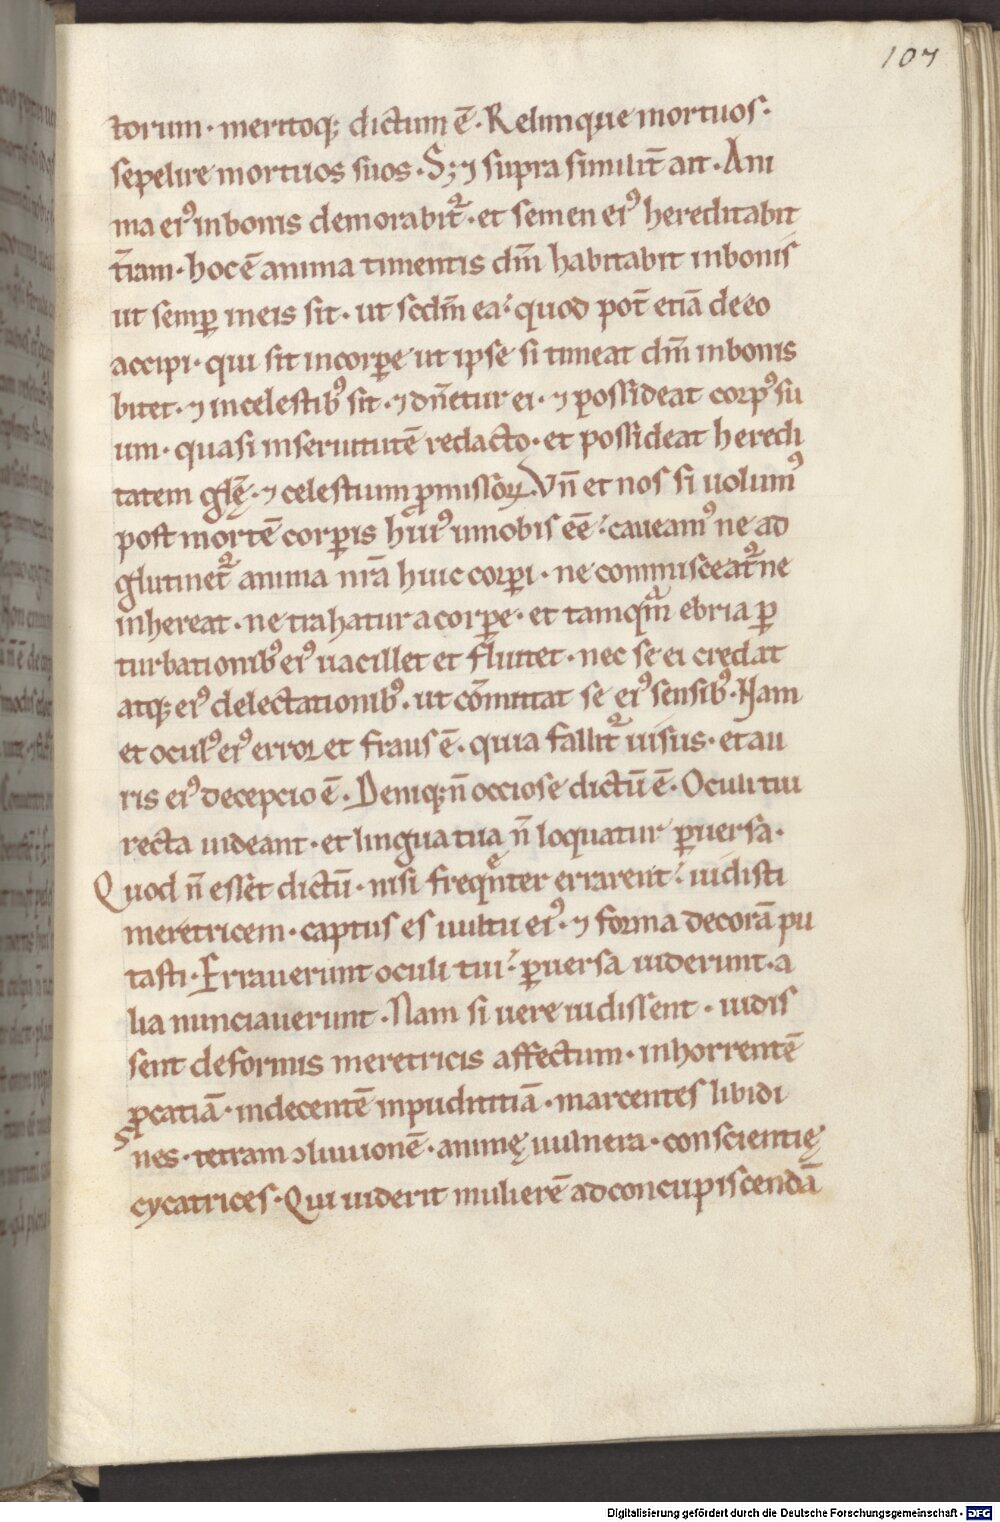 107
torum · meritoq; dictum ē · Relinque mortuos ·
sepelire mortuos suos · S; ⁊ supra similit̄ ait · Ani
ma eiꝰ in bonis demorabit᷑ · et semen eiꝰ hereditabit
t̄ram · hoc ē anima timentis dm̄ habitabit in bonis
ut semꝑ in eis sit · ut scdm̄ ea · quod pot̄ etiā de eo
accipi · qui sit in corꝑe ut ipse si timeat dm̄ in bonis
bitet · ⁊ in celestibꝰ sit · ⁊ dn̄etur ei · ⁊ possideat corpꝰ su
um · quasi in seruitutē redacto · et possideat heredi
tatem gl̄ę · ⁊ celestium ꝓmissoꝝ · Vn̄ et nos si uolumꝰ
post mortē corꝑis huiꝰ in nobis eē · caueamꝰ ne ad
glutinet᷑ anima nr̄a huic corꝑi · ne commisceat᷑ ne
inhereat · ne trahatur a corꝑe · et tamqm̄ ebria ꝑ
turbationibꝰ eiꝰ uacillet et fluitet · nec se ei credat
atq; eiꝰ delectationibꝰ · ut cōmittat se eiꝰ sensibꝰ · Nam
et oculꝰ eiꝰ error et fraus ē · quia fallit᷑ uisus · et au
ris eiꝰ decepcio ē · Deniq; n̄ occiose dictū ē · Oculi tui
recta uideant · et lingua tua n̄ loquatur ꝑuersa ·
Quod n̄ esset dictū · nisi freqn̄ter errarent · uidisti
meretricem · captus es uultu eiꝰ · ⁊ forma decorā pu
tasti · Errauerunt oculi tui · ꝑuersa uiderunt · a
lia nunciauerunt · Nam si uere uidissent · uidis
sent deformis meretricis affectum · inhorrentē
ꝓcatiā · indecentē inpudititiā · marcentes libidi
nes · tetram ↄluuionē · animę uulnera · conscientię
cycatrices · Qui uiderit mulierē ad concupiscendā
Digitalisierung gefördert durch die Deutsche Forschungsgemeinschaft · DFG